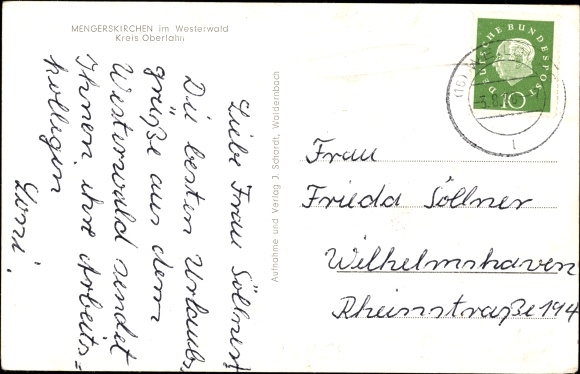 MENGERSKIRCHEN im Westerwald
Kreis Oberlahn
Liebe Frau Söllner!
Die besten Urlaubs-
grüße aus dem
Westerwald sendet
Ihnen ihre Arbeits=
kollegin
Aufnahme und Verlag J. Schardt, Waldernbach
DEUTSCHE BUNDESPOST
10
(16)
Frau
Frieda Söllner
Wilhelmshaven
Rheinstraße 194